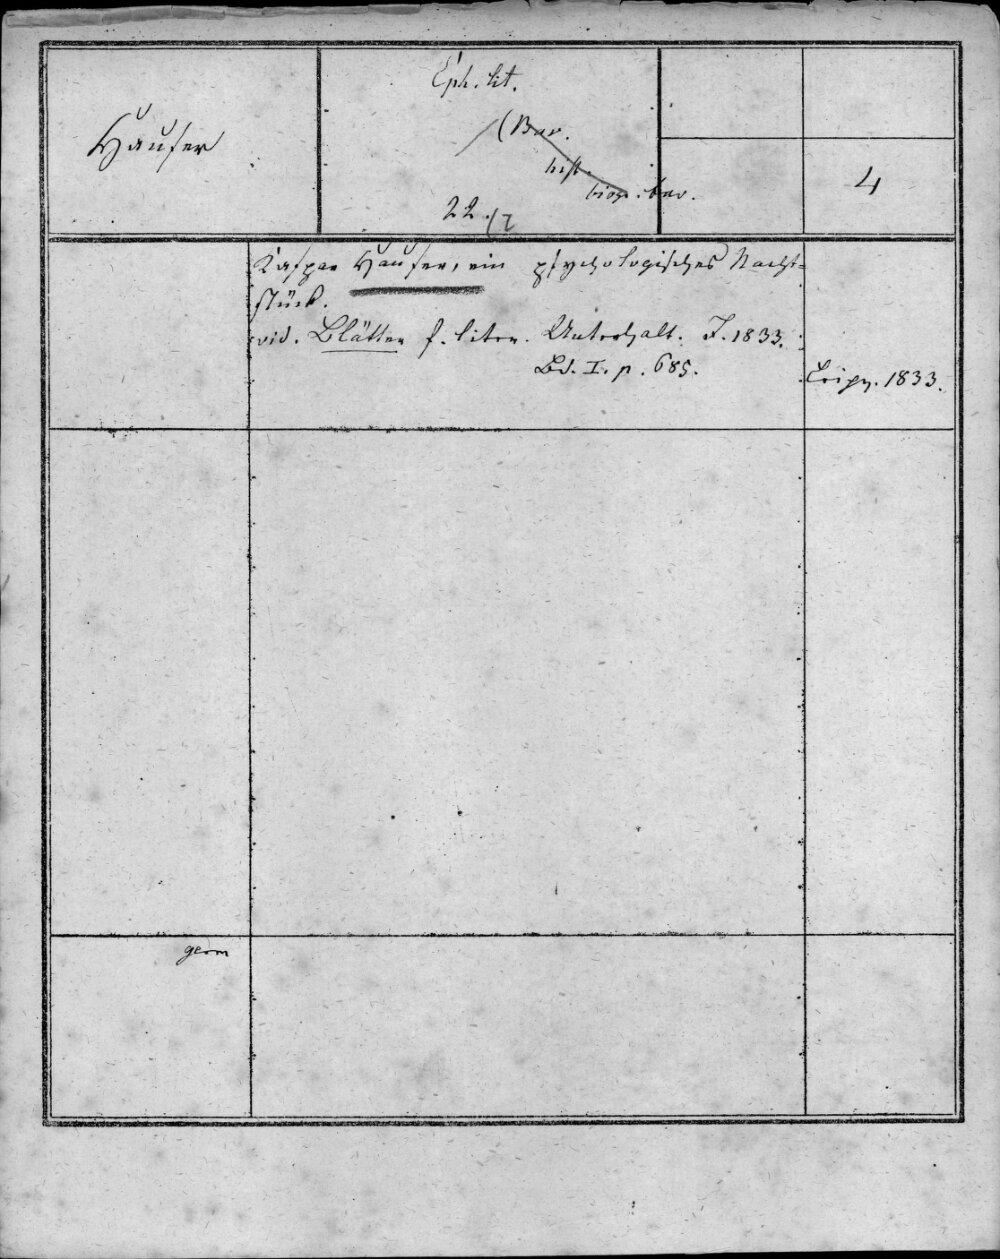 Hauser
Eph. lit.
(Bav.
hist.
biogr. bav.
22
4
Kaspar Hauser, ein psychologisches Nacht=
stück.
vid. Blätter f. liter. Unterhalt. J. 1833.
Bd. I. p. 685.
Leipz. 1833.
germ